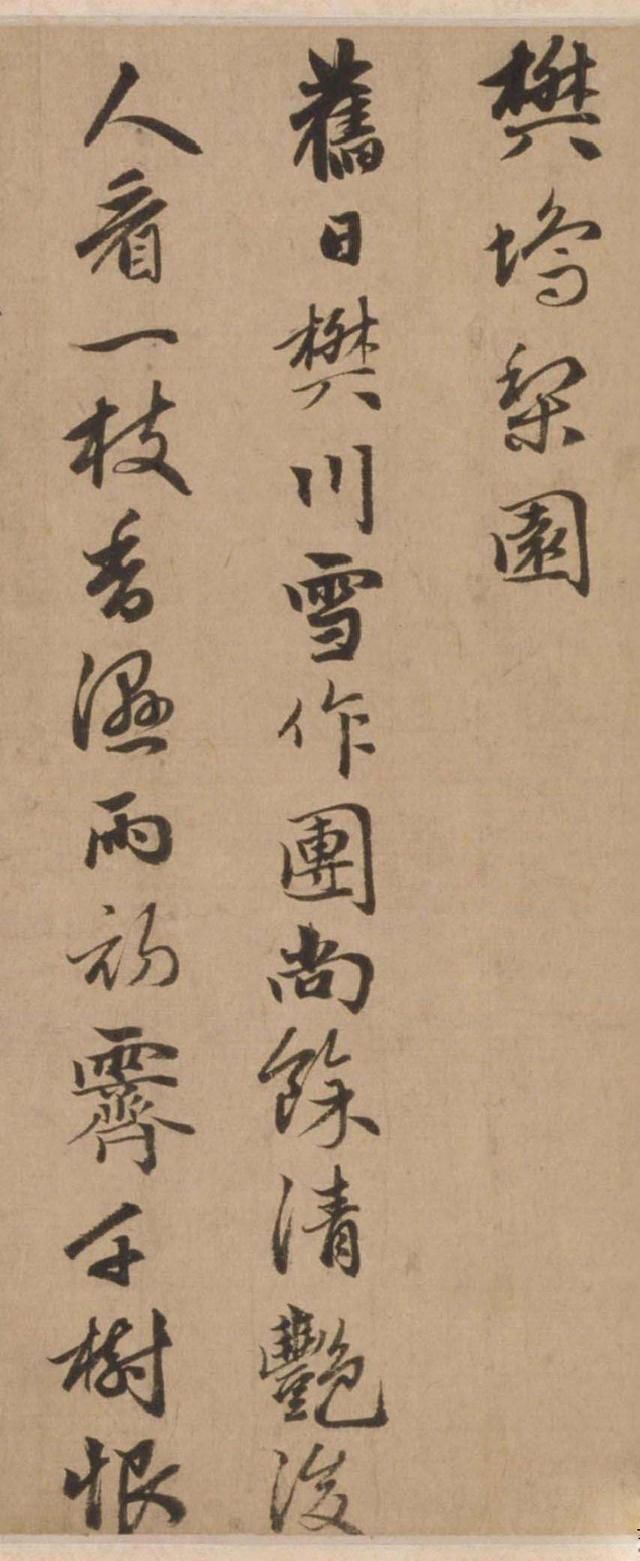 樊塢梨園
舊日樊川雪作團尚餘清艷後
人看一枝香濕雨初霽千樹恨